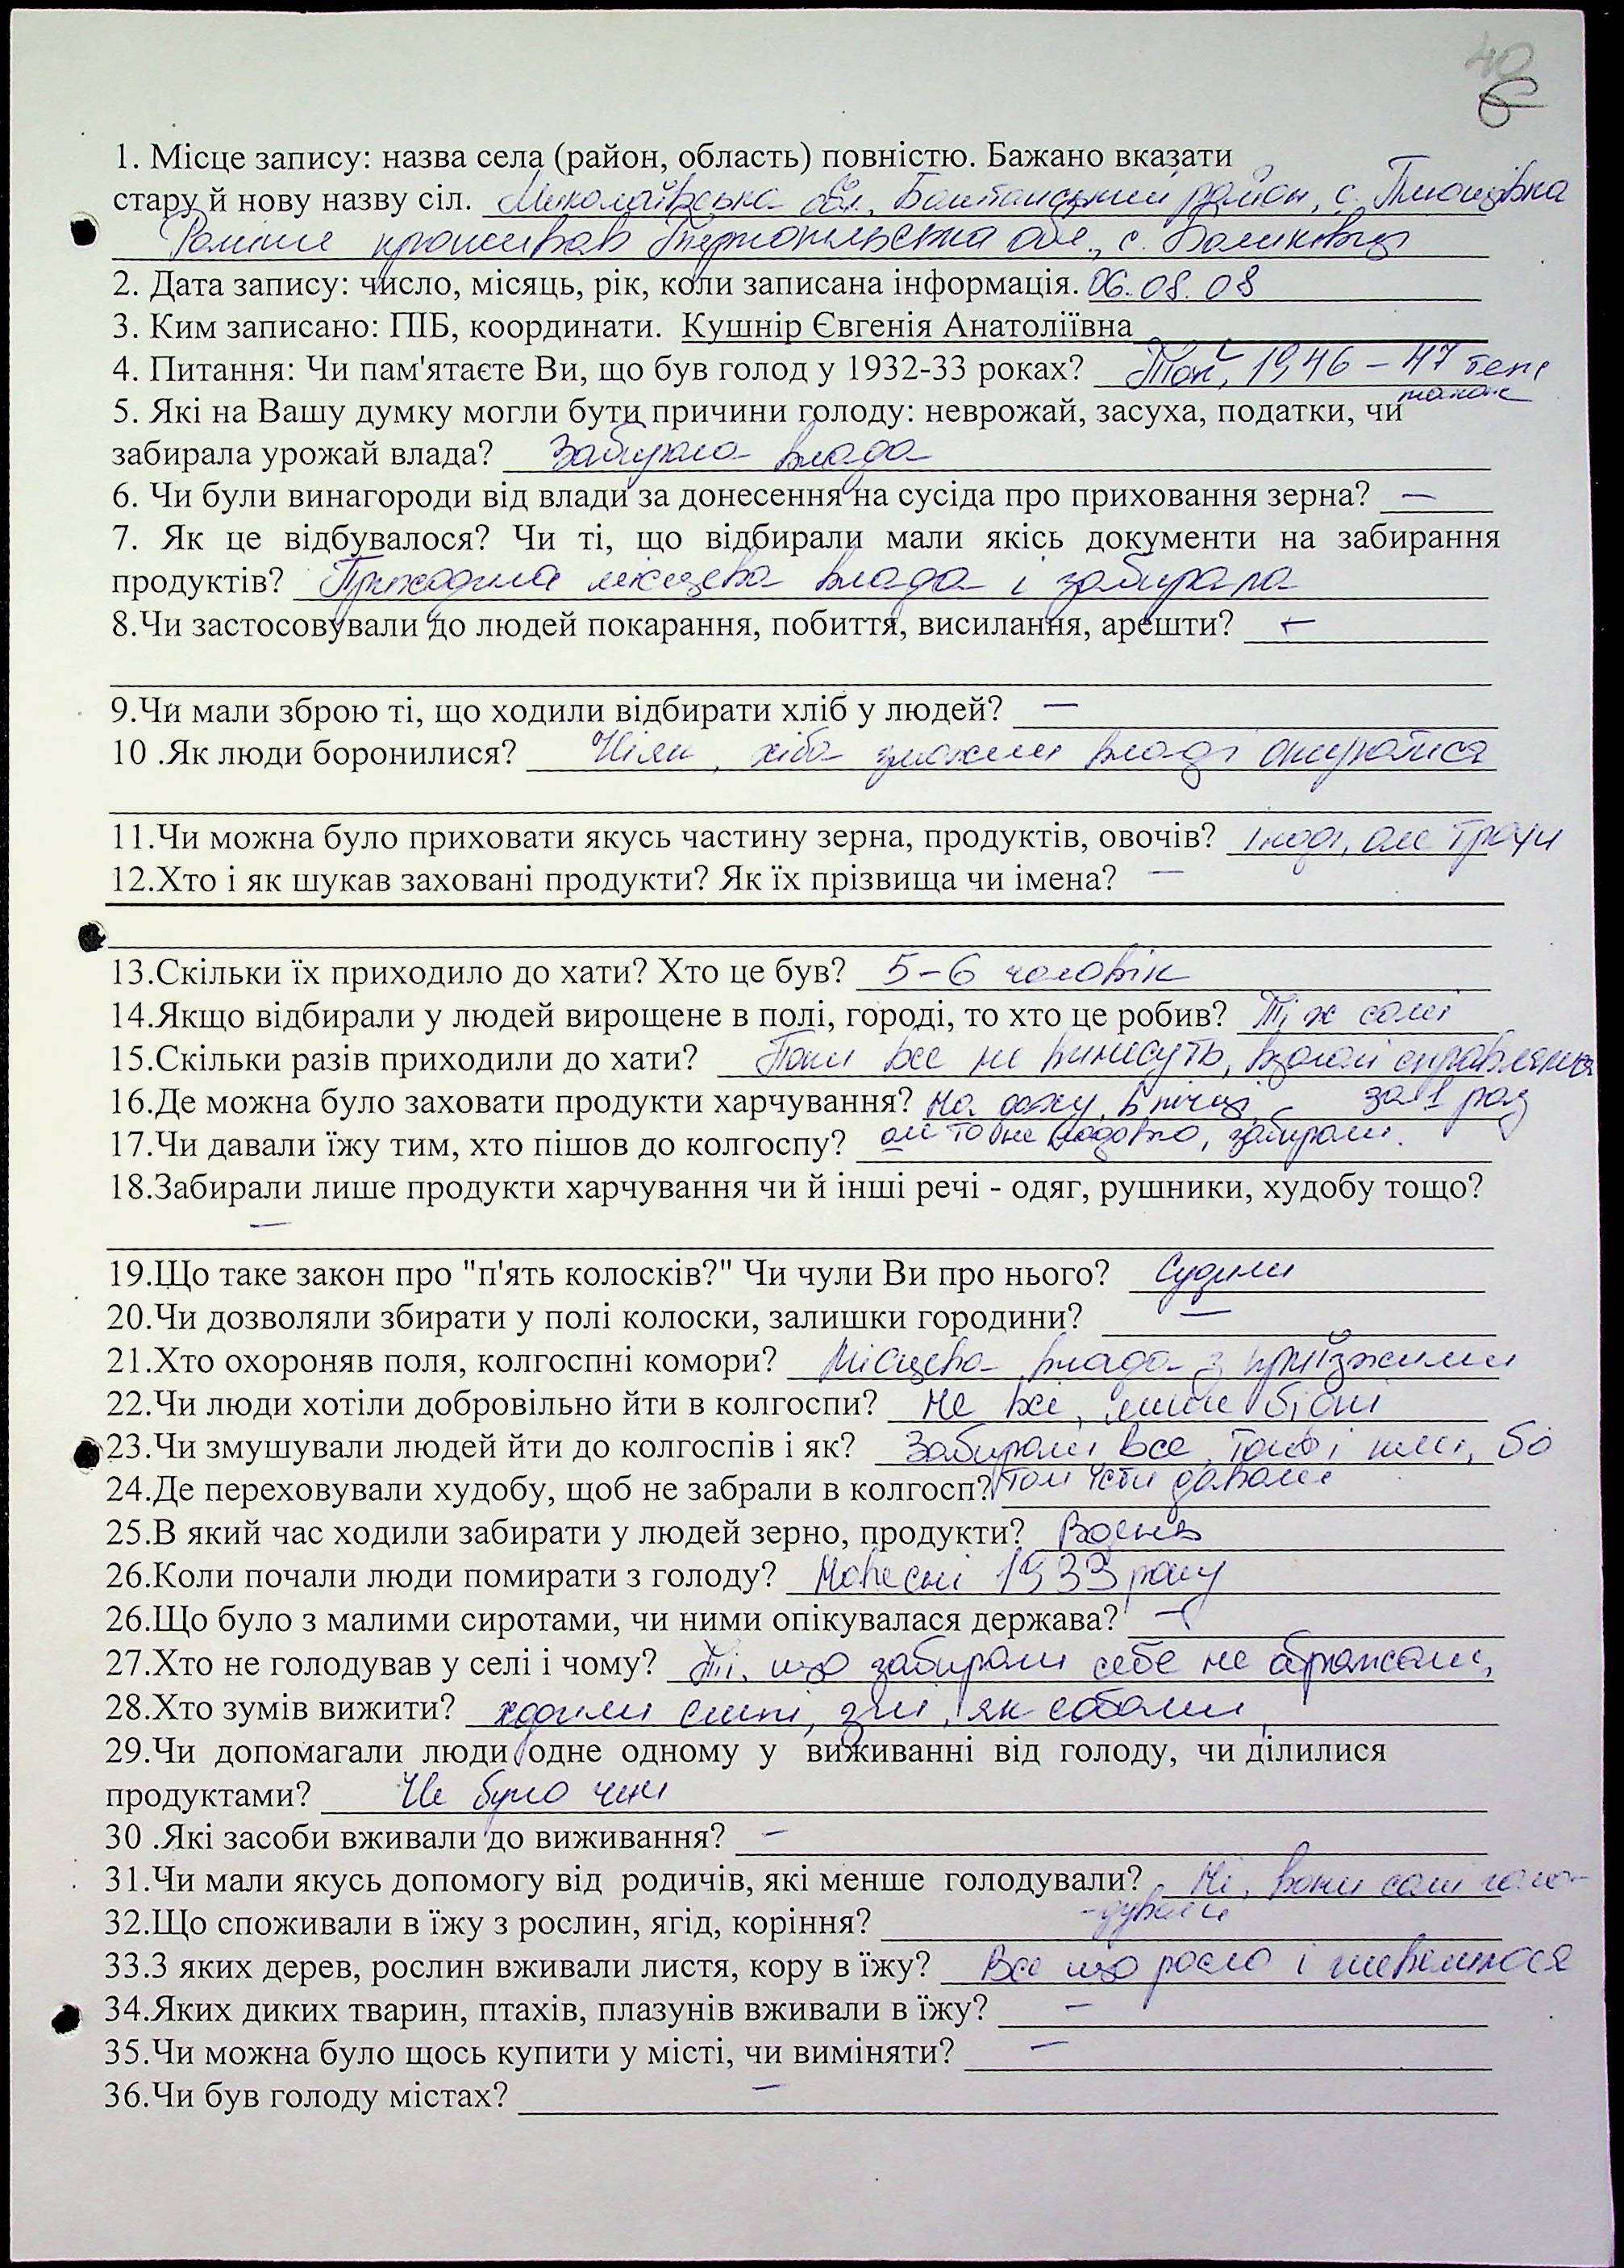 40
6
1. Місце запису: назва села (район, область) повністю. Бажано вказати
стару й нову назву сіл. Миколаївська обл., Баштанський район, с. Плющівка
Раніше проживав Тернопільська обл., с.
2. Дата запису: число, місяць, рік, коли записана інформація. 06.08.08
3. Ким записано: ПІБ, координати. Кушнір Євгенія Анатоліївна
4. Питання: Чи пам'ятаєте Ви, що був голод у 1932-33 роках? Так, 1946 – 47 теж
також
5. Які на Вашу думку могли бути причини голоду: неврожай, засуха, податки, чи
забирала урожай влада? Забирала влада
6. Чи були винагороди від влади за донесення на сусіда про приховання зерна? –
7. Як це відбувалося? Чи ті, що відбирали мали якісь документи на забирання
продуктів? Приходила місцева влада і забирала
8.Чи застосовували до людей покарання, побиття, висилання, арешти? –
9.Чи мали зброю ті, що ходили відбирати хліб у людей? –
10 .Як люди боронилися? Ніяк, хіба зможеш владі опиратися
11.Чи можна було приховати якусь частину зерна, продуктів, овочів? Іноді, але трохи
12.Хто і як шукав заховані продукти? Як їх прізвища чи імена? –
13.Скільки їх приходило до хати? Хто це був? 5–6 чоловік
14.Якщо відбирали у людей вирощене в полі, городі, то хто це робив? Ті ж самі
15.Скільки разів приходили до хати? Поки все не винесуть, взагалі справлялися
16.Де можна було заховати продукти харчування? На даху, в печці, – за 1 раз
17.Чи давали їжу тим, хто пішов до колгоспу? але то не надовго, забирали.
18.Забирали лише продукти харчування чи й інші речі - одяг, рушники, худобу тощо?
–
19.Що таке закон про "п'ять колосків?" Чи чули Ви про нього? Судили
20.Чи дозволяли збирати у полі колоски, залишки городини? –
21.Хто охороняв поля, колгоспні комори? Місцева влада з приїзжими
22.Чи люди хотіли добровільно йти в колгоспи? Не всі, лише бідні
23.Чи змушували людей йти до колгоспів і як? Забирали все, тому і йшли, бо
24.Де переховували худобу, щоб не забрали в колгосп? там їсти давали
25.В який час ходили забирати у людей зерно, продукти? Вдень
26.Коли почали люди помирати з голоду? Навесні 1933 року
26.Що було з малими сиротами, чи ними опікувалася держава? –
27.Хто не голодував у селі і чому? Ті, що забирали себе не ображали,
28.Хто зумів вижити? ходили ситі, злі, як собаки
29.Чи допомагали люди одне одному у виживанні від голоду, чи ділилися
продуктами? Не було чим
30 .Які засоби вживали до виживання? –
31.Чи мали якусь допомогу від родичів, які менше голодували? Ні, вони самі голо-
32.Що споживали в їжу з рослин, ягід, коріння? -дували
33.З яких дерев, рослин вживали листя, кору в їжу? Все що росло і шевелилося
34.Яких диких тварин, птахів, плазунів вживали в їжу? –
35.Чи можна було щось купити у місті, чи виміняти? –
36.Чи був голоду містах? –